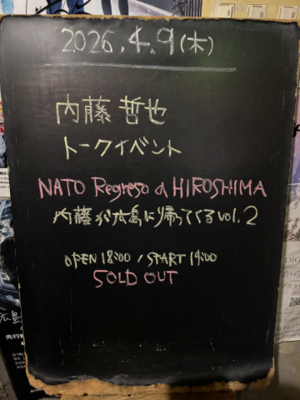 2026.4.9(木)
内藤哲也
トークイベント
NATO Regreso a HIROSHIMA
内藤が広島に帰ってくるvol.2
OPEN 18:00 / START 19:00
SOLD OUT